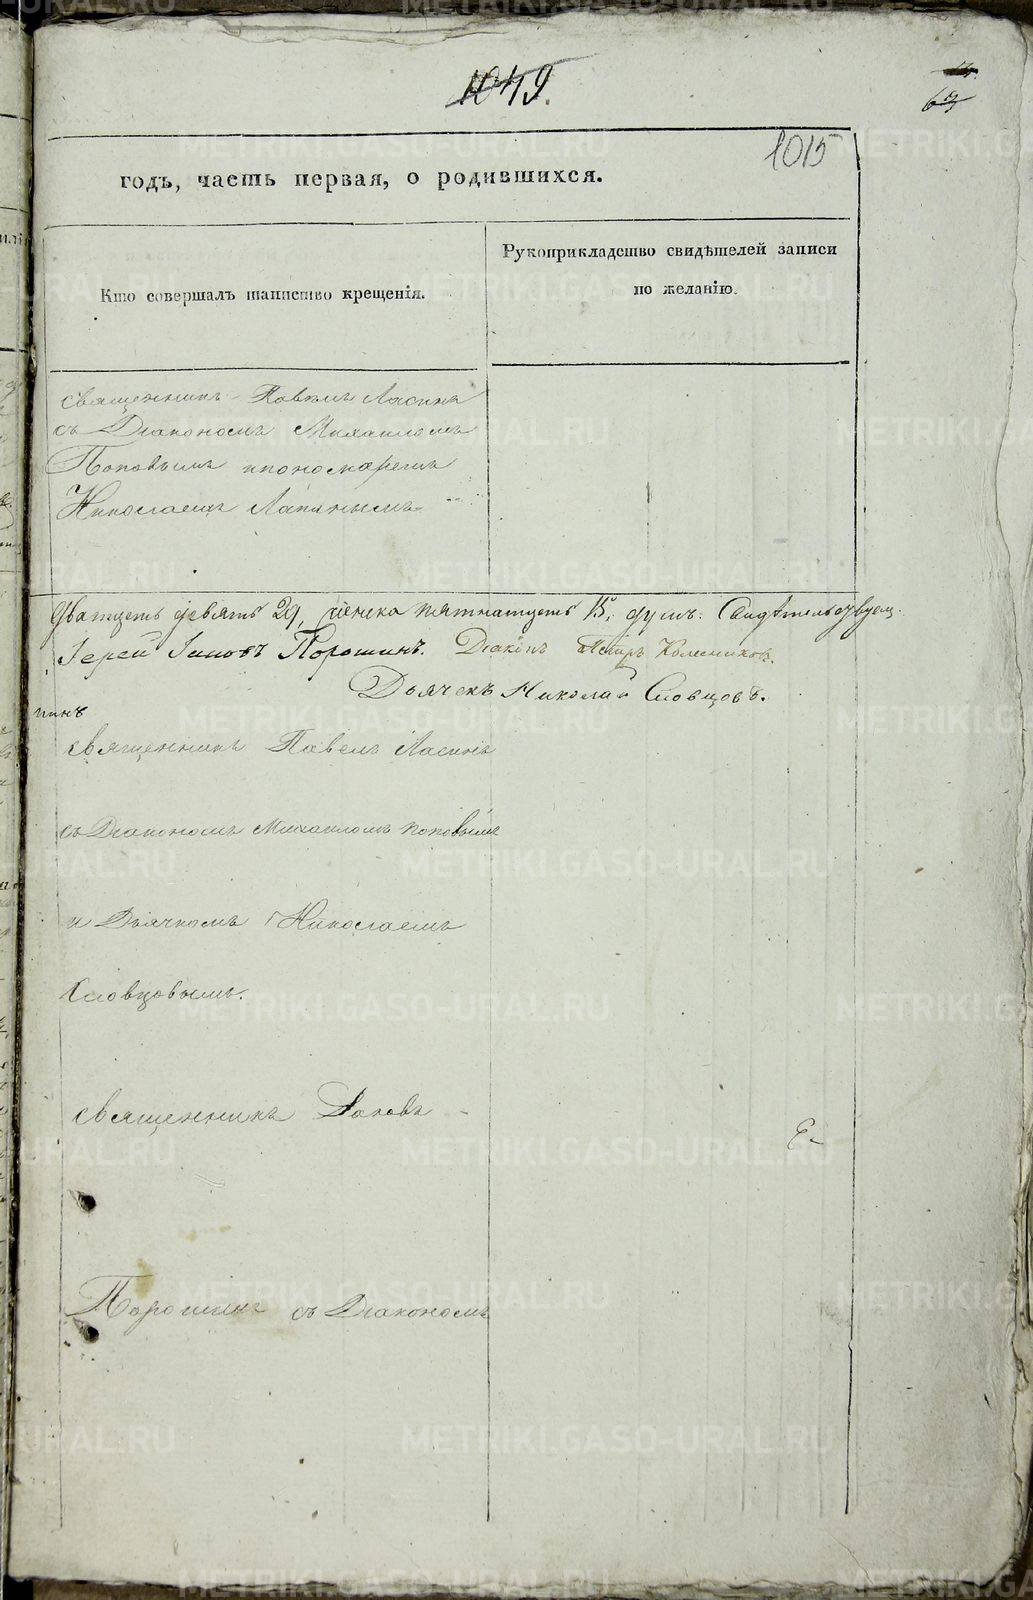 1049.
63
1015
годъ, часть первая, о родившихся.
Кто совершалъ таинство крещенія.
Рукоприкладство свидѣтелей записи
по желанію.
священникъ Павелъ Ляпинъ
съ Діакономъ Михаиломъ
Поповымъ и пономаремъ
Николаемъ Ляпинымъ
дватцеть девять 29, женска пятнатцеть 15, душъ. Свидѣтельствуемъ
Іерей Іаковъ Порошинъ. Діаконъ Петръ Колесниковъ.
Дьячекъ Николай Словцовъ.
пинъ
священникъ Павелъ Ляпинъ
съ Діакономъ Михаиломъ Поповымъ
и Дьячкомъ Николаемъ
Словцовымъ.
священникъ Іаковъ
Порошинъ съ Діакономъ
METRIKI.GASO-URAL.RU